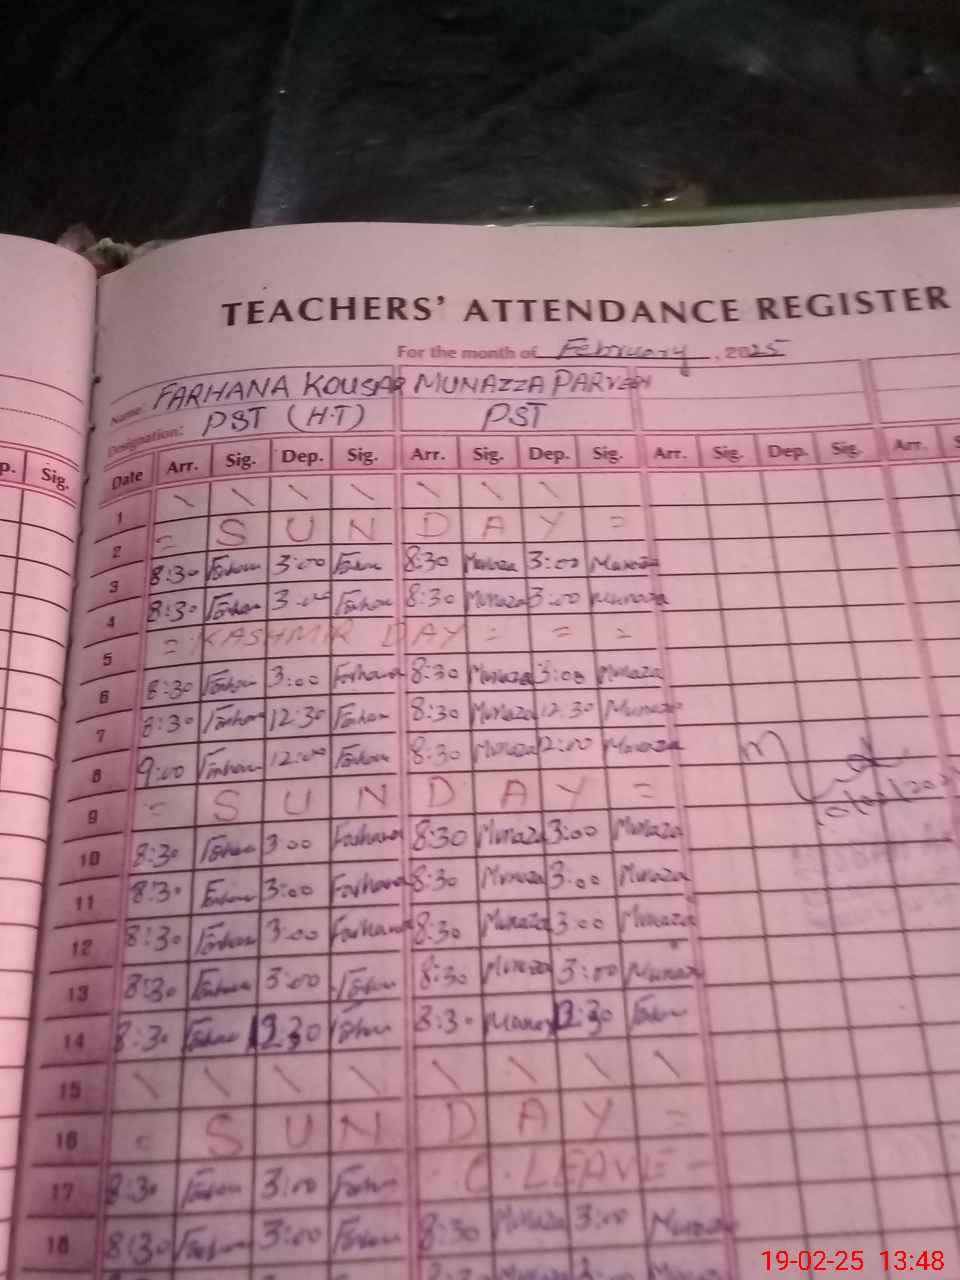 TEACHERS' ATTENDANCE REGISTER
For the month of February, 2025
Name: FARHANA KOUSAR MUNAZZA PARVEEN
Designation: PST (H.T) PST
p. Sig. Date Arr. Sig. Dep. Sig. Arr. Sig. Dep. Sig. Arr. Sig. Dep. Sig. Arr. S
1 \ \ \ \ \ \ \
2 = S U N D A Y =
3 8:30 Farhana 3:00 Farhana 8:30 Munaza 3:00 Munaza
4 8:30 Farhana 3:00 Farhana 8:30 Munaza 3:00 Munaza
5 = KASHMIR DAY = = =
6 8:30 Farhana 3:00 Farhana 8:30 Munaza 3:00 Munaza
7 8:30 Farhana 12:30 Farhana 8:30 Munaza 12:30 Munaza
8 9:00 Farhana 12:00 Farhana 8:30 Munaza 12:00 Munaza
9 = S U N D A Y =
10 8:30 Farhana 3:00 Farhana 8:30 Munaza 3:00 Munaza
11 8:30 Farhana 3:00 Farhana 8:30 Munaza 3:00 Munaza
12 8:30 Farhana 3:00 Farhana 8:30 Munaza 3:00 Munaza
13 8:30 Farhana 3:00 Farhana 8:30 Munaza 3:00 Munaza
14 8:30 Farhana 12:30 Farhana 8:30 Munaza 12:30 Farhan
15 \ \ \ \ \ \ \ \
16 = S U N D A Y =
17 8:30 Farhana 3:00 Farhana C. LEAVE -
18 8:30 Farhana 3:00 Farhana 8:30 Munaza 3:00 Munaza
19-02-25 13:48